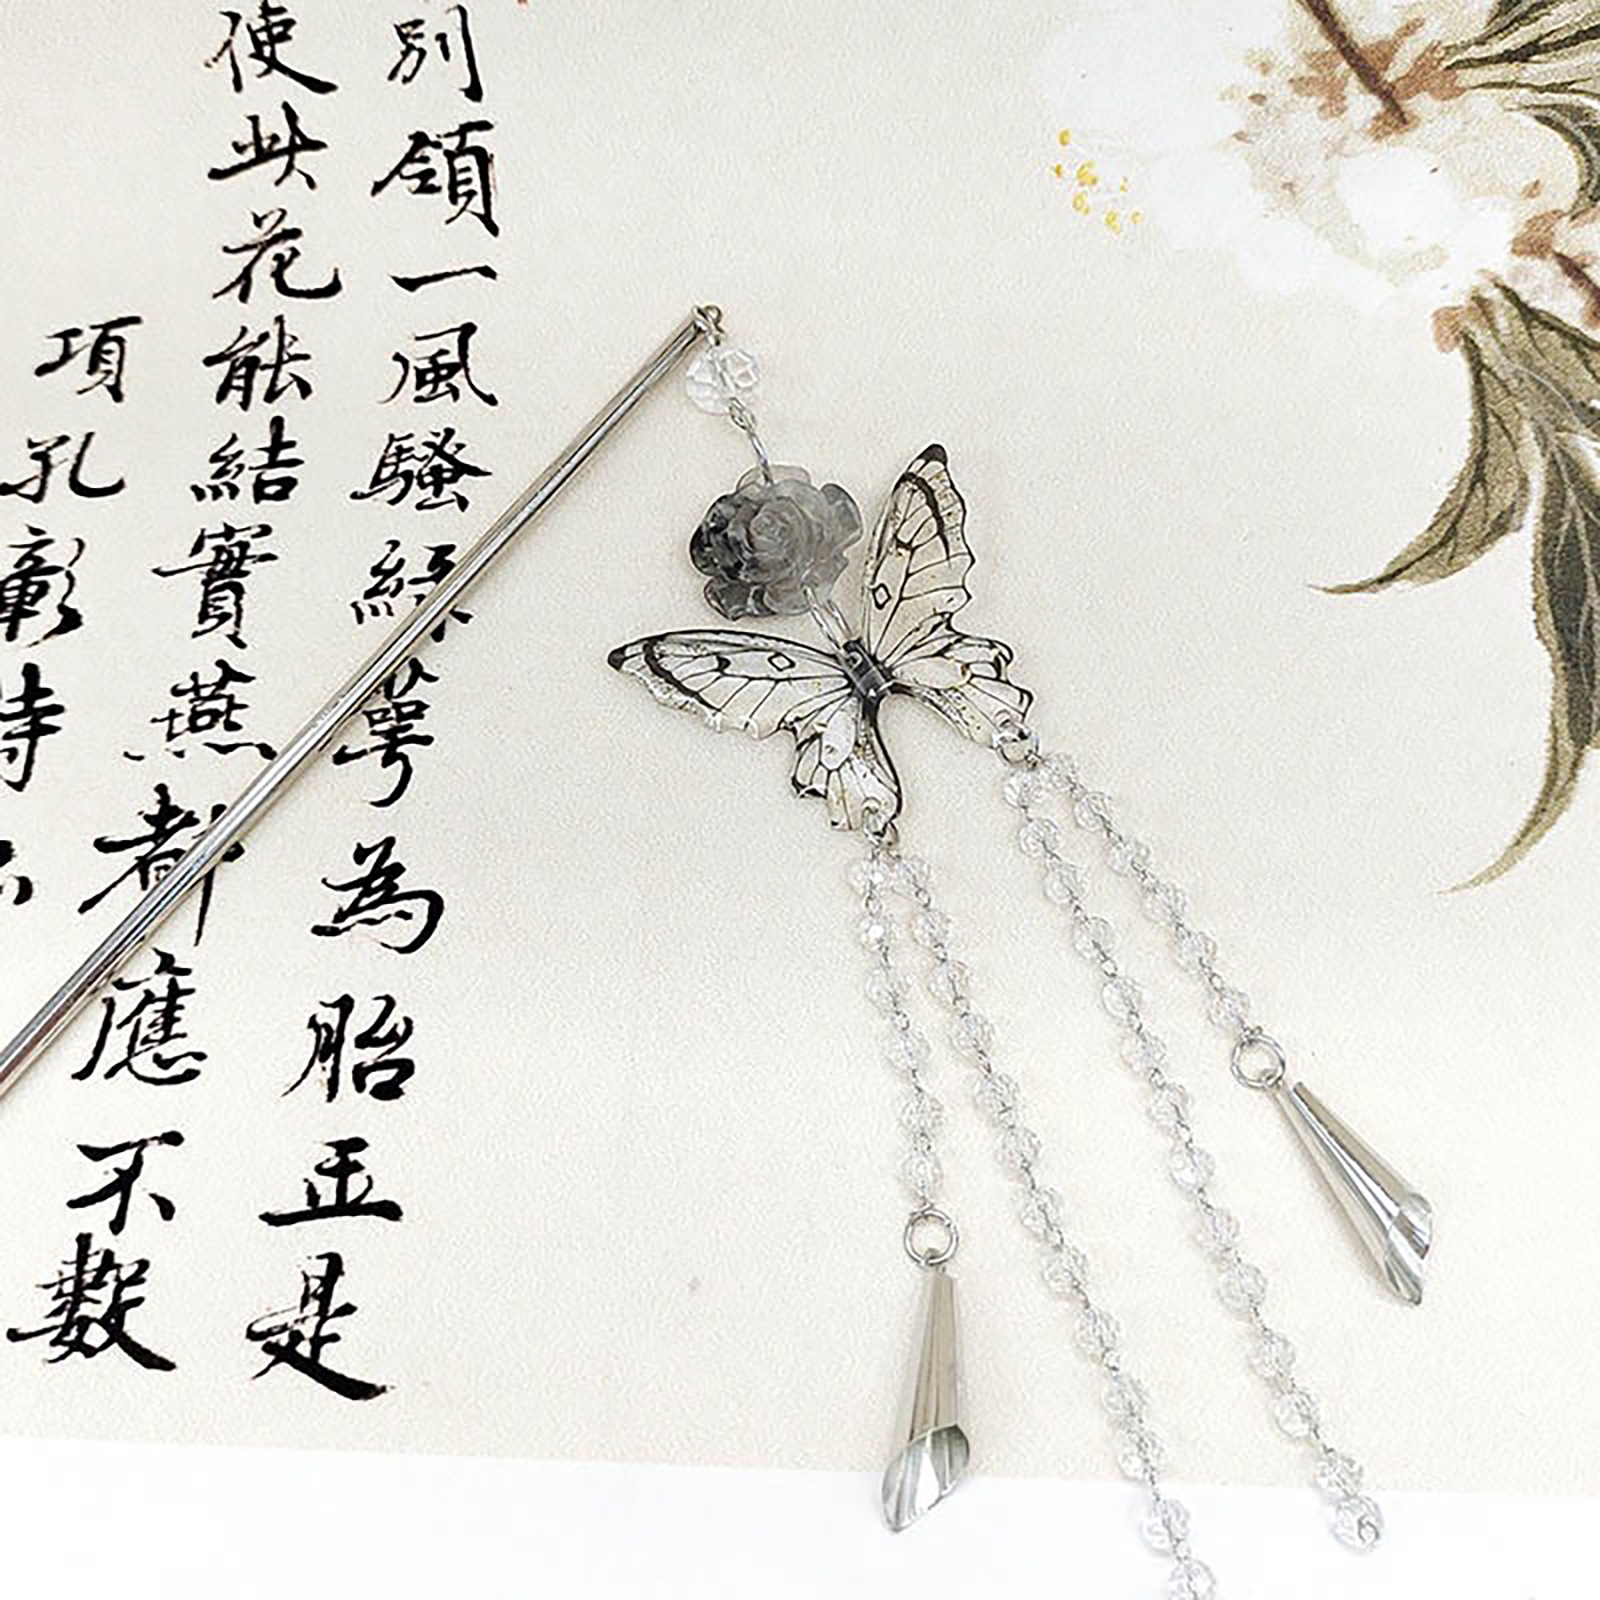 別領一風騷綠萼為胎正是
使此花能結實燕都應不數
項孔彰詩